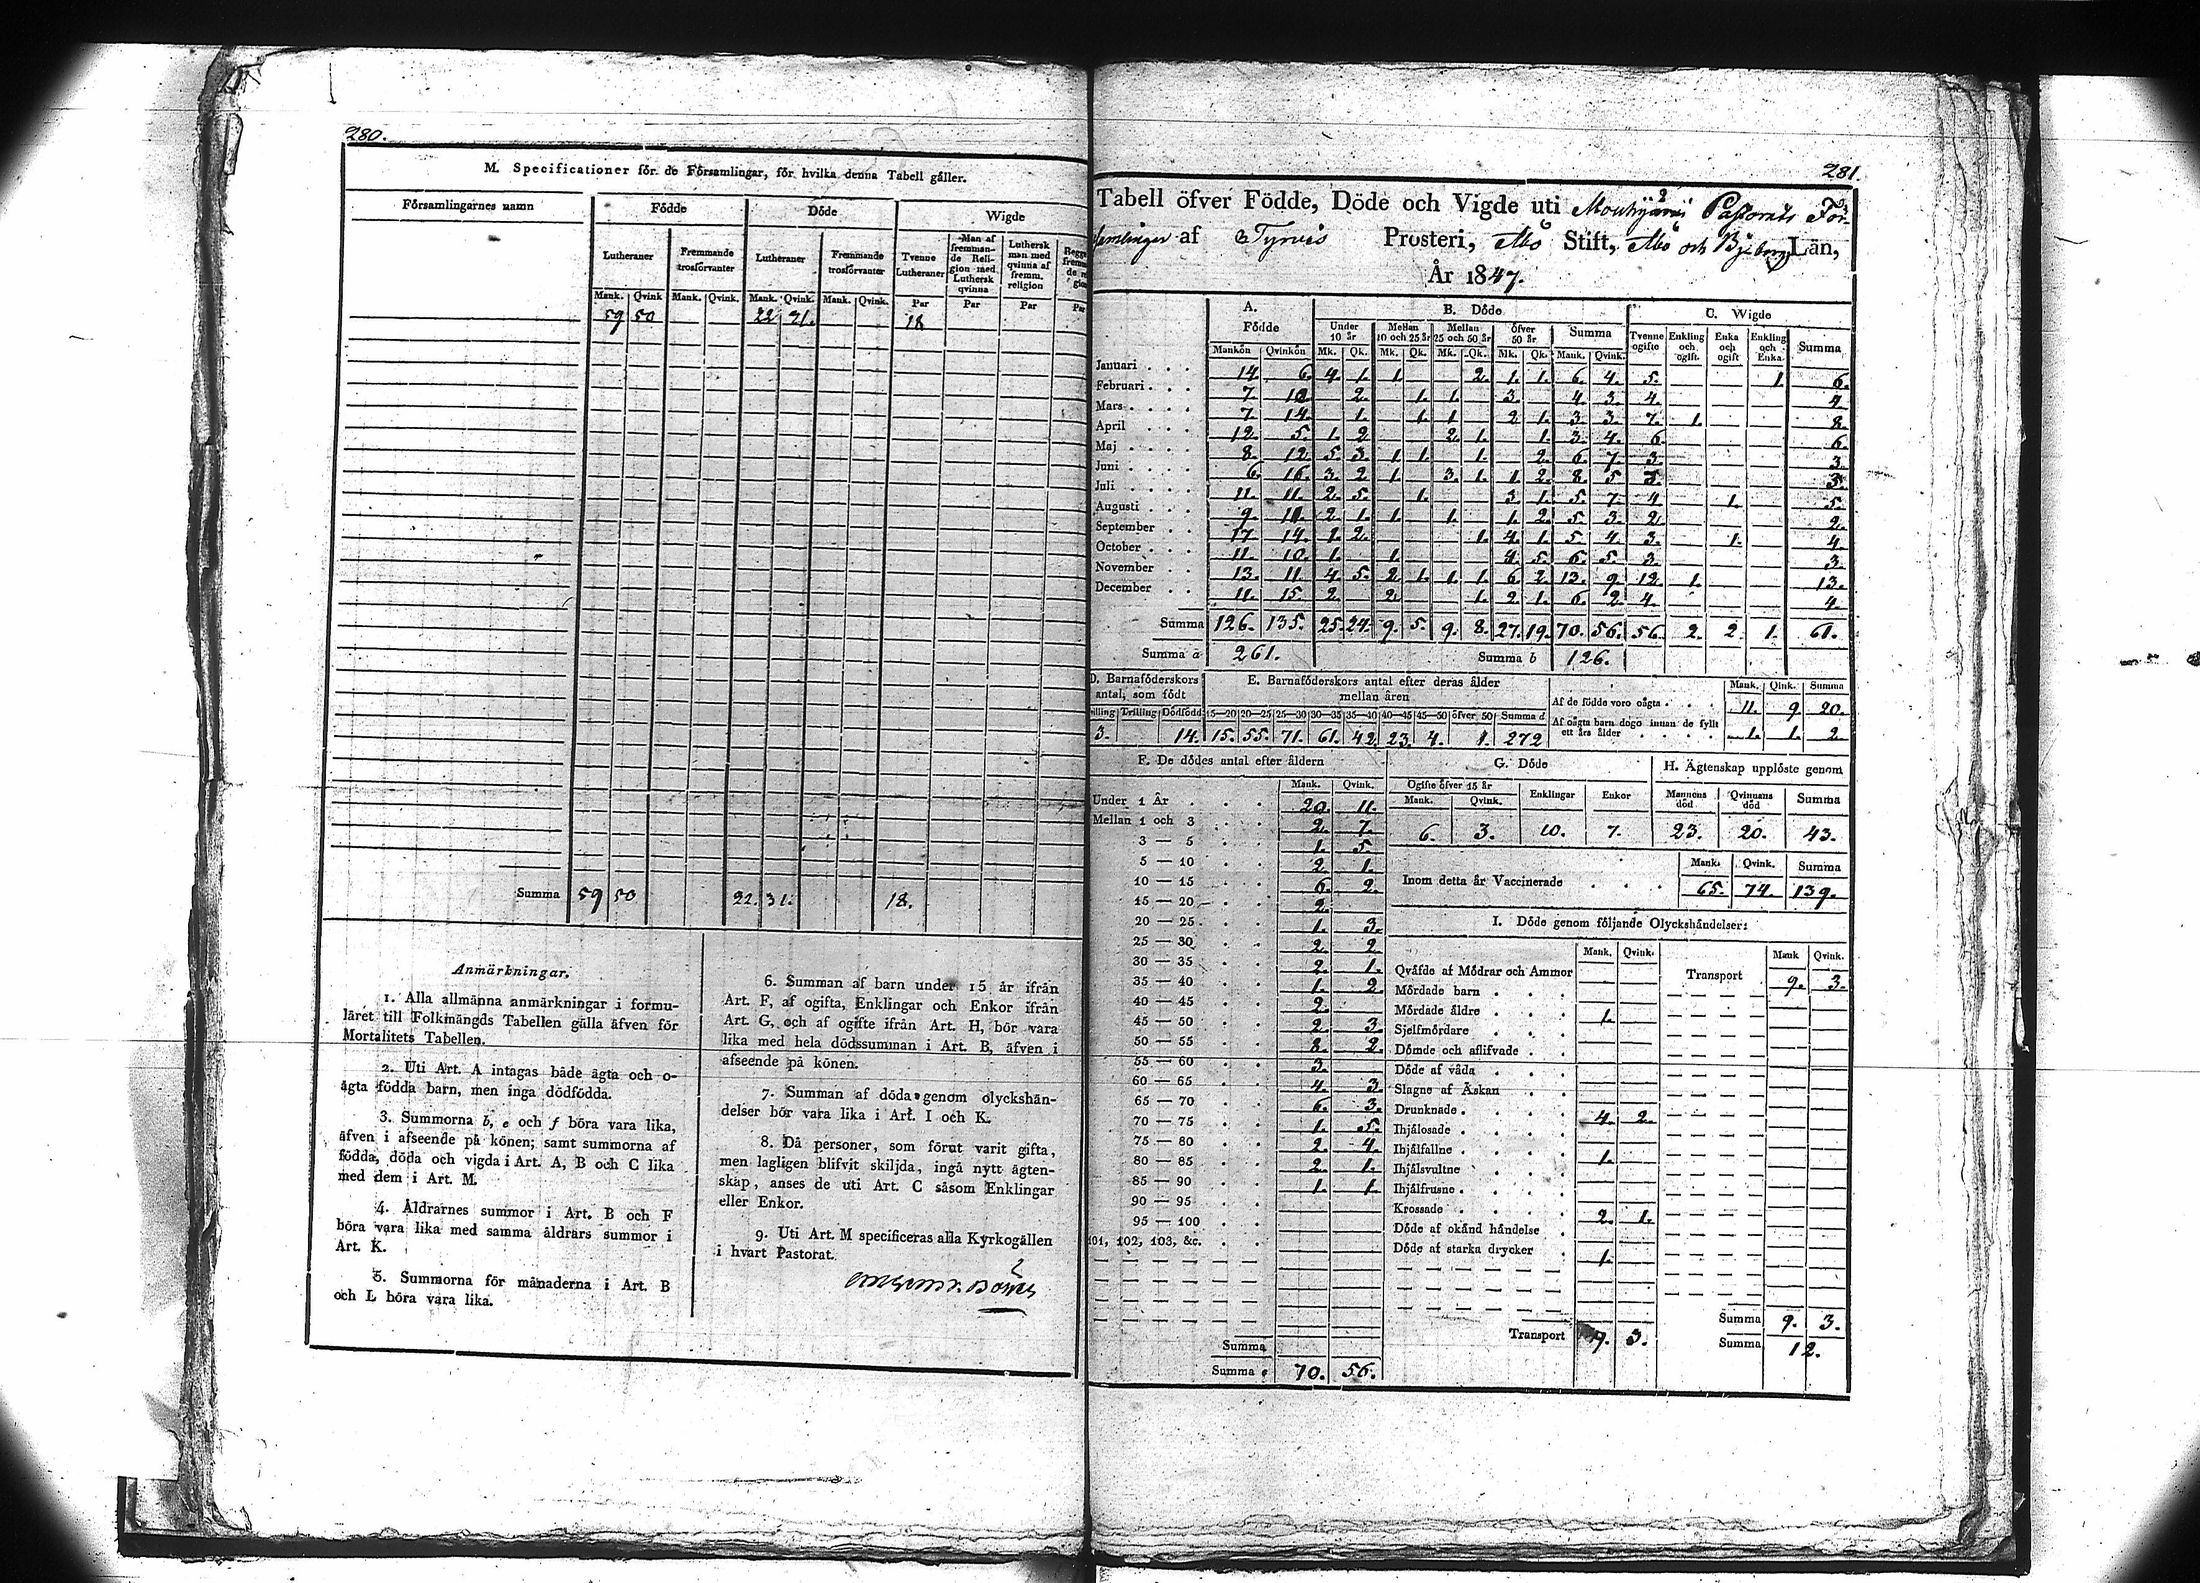 280.
M. Specificationer för de Församlingar, för hvilka denna Tabell gäller.
Församlingarnes namn Födde Döde Wigde
Lutheraner Fremmande trosförvanter Lutheraner Fremmande trosförvanter Tvenne Lutheraner Man af fremmande Religion med Luthersk qvinna Luthersk man med qvinna af fremm. religion
Mank. Qvink Mank. Qvink. Mank. Qvink. Mank. Qvink. Par Par Par Par
59 50 22 31. 18
Summa 59 50 22. 31. 18.
Anmärkningar.
1. Alla allmänna anmärkningar i formu-
läret till Folkmängds Tabellen gälla äfven för
Mortalitets Tabellen.
2. Uti Art. A intagas både ägta och o-
ägta födda barn, men inga dödfödda.
3. Summorna b, e och f böra vara lika,
äfven i afseende på könen; samt summorna af
födda, döda och vigda i Art. A, B och C lika
med dem i Art. M.
4. Åldrarnes summor i Art. B och F
böra vara lika med samma åldrars summor i
Art. K.
5. Summorna för månaderna i Art. B
och L böra vara lika.
6. Summan af barn under 15 år ifrån
Art. F, af ogifta, Enklingar och Enkor ifrån
Art. G, och af ogifte ifrån Art. H, bör vara
lika med hela dödssumman i Art. B, äfven i
afseende på könen.
7. Summan af döda genom olyckshän-
delser bör vara lika i Art. I och K.
8. Då personer, som förut varit gifta,
men lagligen blifvit skiljda, ingå nytt ägten-
skap, anses de uti Art. C såsom Enklingar
eller Enkor.
9. Uti Art. M specificeras alla Kyrkogällen
i hvart Pastorat.
281.
Tabell öfver Födde, Döde och Vigde uti Mouhijärvi Pastorats För-
samlingar af Tyrvis Prosteri, Åbo Stift, Åbo och Björneborgs Län,
År 1847.
A. Födde B. Döde C. Wigde
Under 10 år Mellan 10 och 25 år Mellan 25 och 50 år Öfver 50 år Summa Tvenne ogifte Enkling och ogift. Enka och ogift Enkling och Enka Summa
Mankön Qvinkön Mk. Qk. Mk. Qk. Mk. Qk. Mk. Qk. Mank. Qvink.
Januari . . . 14. 6. 4. 1. 1. 2. 1. 1. 6. 4. 5. 1. 6.
Februari . . . 7. 12. 2. 1. 1. 3. 4. 3. 4. 4.
Mars . . . . 7. 14. 1. 1. 1. 2. 1. 3. 3. 7. 1. 8.
April . . . 12. 5. 1. 2. 2. 1. 1. 3. 4. 6. 6.
Maj . . . . 8. 12. 5. 3. 1. 1. 1. 2. 6. 7. 3. 3.
Juni . . . . 6. 16. 3. 2. 1. 3. 1. 1. 2. 8. 5. 3. 3.
Juli . . . . 11. 11. 2. 5. 1. 3. 1. 5. 7. 4. 1. 5.
Augusti . . . 9. 11. 2. 1. 1. 1. 1. 2. 5. 3. 2. 2.
September . . 17. 14. 1. 2. 1. 4. 1. 5. 4. 3. 1. 4.
October . . . 11. 10. 1. 1. 4. 5. 6. 5. 3. 3.
November . . 13. 11. 4. 5. 2. 1. 1. 1. 6. 2. 13. 9. 12. 1. 13.
December . . 11. 15. 2. 2. 1. 2. 1. 6. 2. 4. 4.
Summa 126. 135. 25. 24. 9. 5. 9. 8. 27. 19. 70. 56. 56. 2. 2. 1. 61.
Summa a 261. Summa b 126.
D. Barnaföderskors antal, som födt
Trilling Dödfödd
3. 14.
E. Barnaföderskors antal efter deras ålder mellan åren
15—20 20—25 25—30 30—35 35—40 40—45 45—50 öfver 50 Summa d
15. 55. 71. 61. 42. 23. 4. 1. 272
Mank. Qink. Summa
Af de födde voro oägta . . . 11. 9. 20.
Af oägta barn dogo innan de fyllt ett års ålder . . . . . 1. 1. 2.
F. De dödes antal efter åldern
Mank. Qvink.
Under 1 År . . . 20. 11.
Mellan 1 och 3 . . 2. 7.
3 — 5 . . 1. 5.
5 — 10 . . 2. 1.
10 — 15 . . 6. 2.
15 — 20 . . 2.
20 — 25 . . 1. 3.
25 — 30 . . 2. 2.
30 — 35 . . 2. 1.
35 — 40 . . 1. 2.
40 — 45 . . 2.
45 — 50 . . 2. 3.
50 — 55 . . 8. 2.
55 — 60 . . 3.
60 — 65 . . 4. 3.
65 — 70 . . 6. 3.
70 — 75 . . 1. 5.
75 — 80 . . 2. 4.
80 — 85 . . 2. 1.
85 — 90 . . 1. 1.
90 — 95 . .
95 — 100 . .
101, 102, 103, &c. . .
Summa
Summa e 70. 56.
G. Döde
Ogifte öfver 15 år Enklingar Enkor
Mank. Qvink.
6. 3. 10. 7.
H. Ägtenskap upplöste genom
Mannens död Qvinnans död Summa
23. 20. 43.
Mank. Qvink. Summa
Inom detta år Vaccinerade . . . 65. 74. 139.
I. Döde genom följande Olyckshändelser:
Mank. Qvink. Mank Qvink.
Qväfde af Mödrar och Ammor Transport 9. 3.
Mördade barn . . .
Mördade äldre . . . 1.
Sjelfmördare . . .
Dömde och aflifvade . .
Döde af våda . . .
Slagne af Åskan . .
Drunknade . . . . 4. 2.
Ihjälosade . . . .
Ihjälfallne . . . . 1.
Ihjälsvultne . . .
Ihjälfrusne . . . .
Krossade . . . . 2. 1.
Döde af okänd händelse .
Döde af starka drycker . 1.
Transport 9. 3.
Summa 9. 3.
Summa 12.